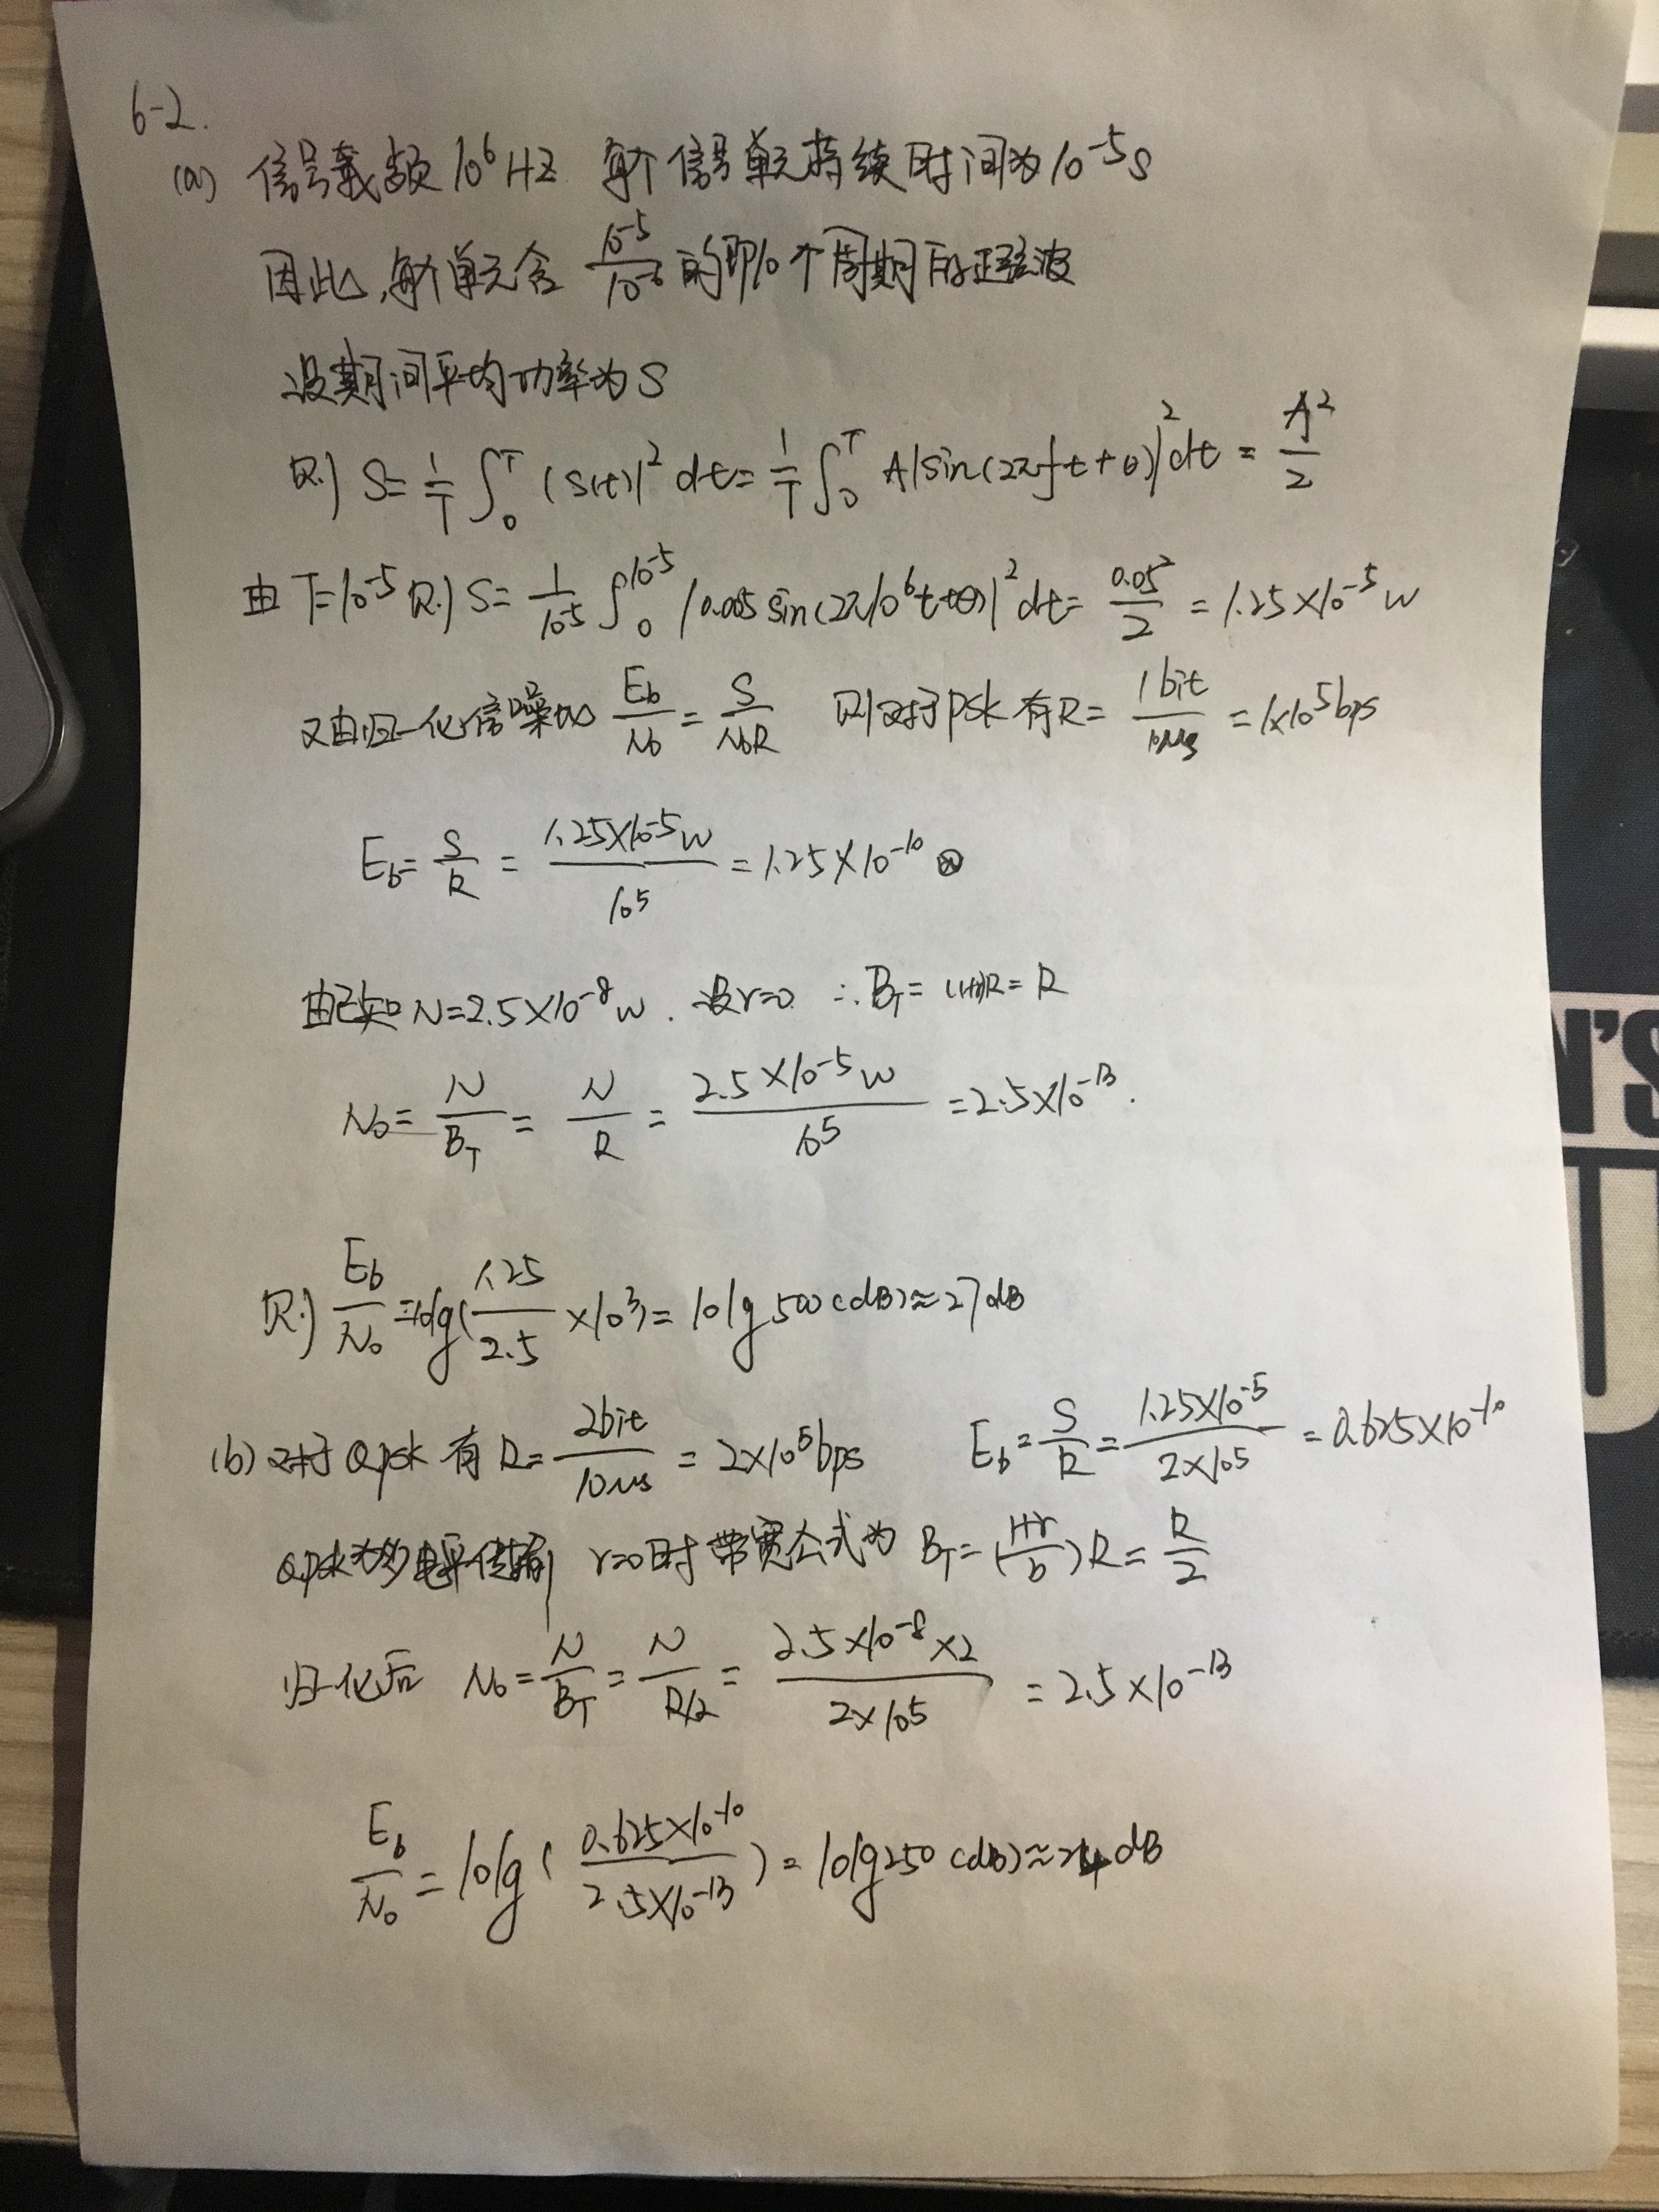 6-2.
(a) 信号载频 10⁶HZ 每个信号单元持续时间为10⁻⁵s
因此,每个单元含 10⁻⁵/10⁻⁶ 的即10个周期的正弦波
设期间平均功率为S
则 S= 1/T ∫₀ᵀ (s(t)|² dt= 1/T ∫₀ᵀ A|sin(2πft+θ)|² dt = A²/2
由 T=10⁻⁵ 则 S= 1/10⁻⁵ ∫₀^10⁻⁵ |0.005 sin(2π10⁶t+θ)|² dt= 0.05²/2 = 1.25×10⁻⁵ w
又由归一化信噪比 Eb/N₀ = S/N₀R 则对于psk 有R= 1bit/10μs = 1×10⁵bps
Eb= S/R = 1.25×10⁻⁵w/10⁵ = 1.25×10⁻¹⁰
由已知 N=2.5×10⁻⁸w . 设r=0 ∴ B_T= (1+r)R= R
N₀= N/B_T = N/R = 2.5×10⁻⁵w/10⁵ =2.5×10⁻¹³.
则 Eb/N₀ =10lg( 1.25/2.5 ×10³)= 10lg500(dB)≈27dB
(b) 对于Qpsk 有 R= 2bit/10μs = 2×10⁵bps Eb= S/R = 1.25×10⁻⁵/2×10⁵ = 0.625×10⁻¹⁰
Qpsk为多电平传输 r=0时 带宽公式为 B_T= (1+r/b)R= R/2
归一化后 N₀= N/B_T = N/R/2 = 2.5×10⁻⁸×2/2×10⁵ = 2.5×10⁻¹³
Eb/N₀ = 10lg( 0.625×10⁻¹⁰/2.5×10⁻¹³ ) = 10lg250(dB)≈24dB
N'S